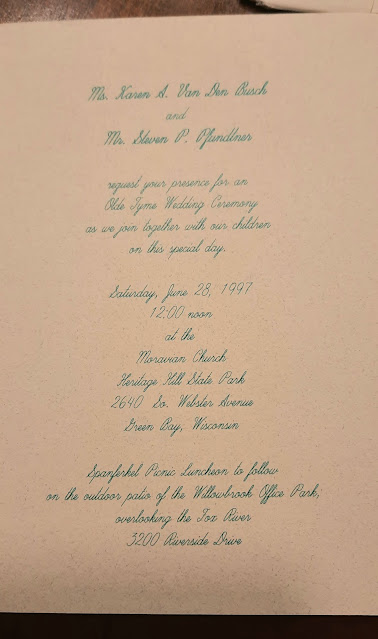 Ms. Karen A. Van Den Busch
and
Mr. Steven P. Pfundtner
request your presence for an
Olde Tyme Wedding Ceremony
as we join together with our children
on this special day.
Saturday, June 28, 1997
12:00 noon
at the
Moravian Church
Heritage Hill State Park
2640 So. Webster Avenue
Green Bay, Wisconsin
Spanferkel Picnic Luncheon to follow
on the outdoor patio of the Willowbrook Office Park,
overlooking the Fox River
3200 Riverside Drive